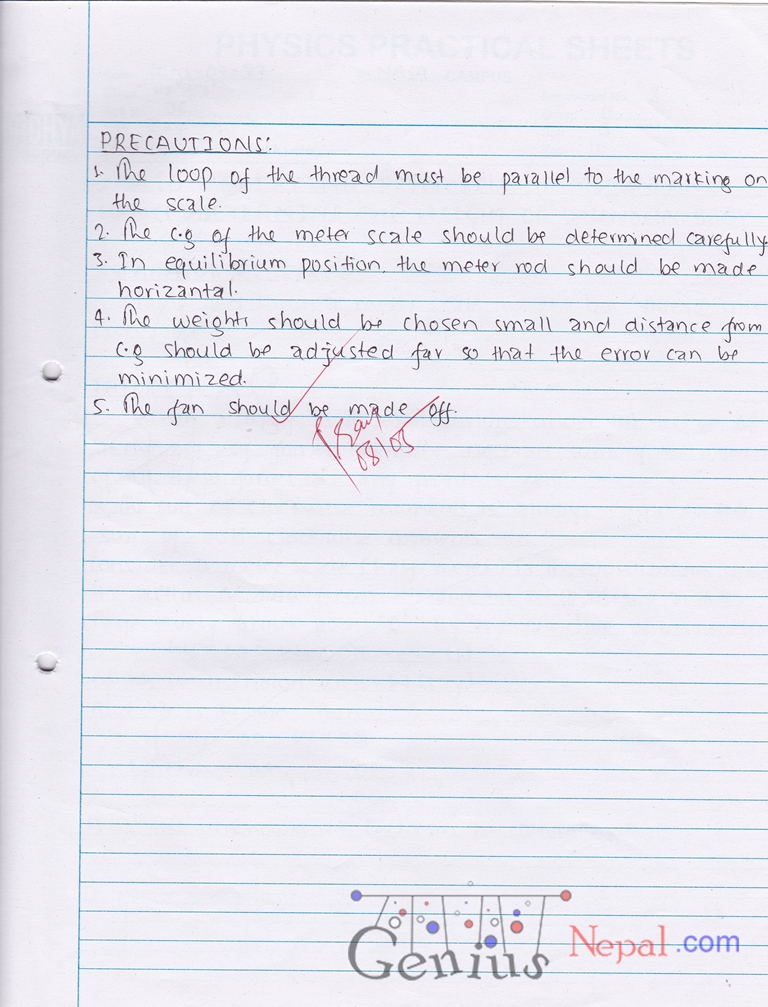 PHYSICS PRACTICAL SHEETS
PRECAUTIONS:
1. The loop of the thread must be parallel to the marking on
the scale.
2. The c.g of the meter scale should be determined carefully
3. In equilibrium position, the meter rod should be made
horizantal.
4. The weights should be chosen small and distance from
c.g should be adjusted far so that the error can be
minimized.
5. The fan should be made off.
08/05
Genius Nepal.com